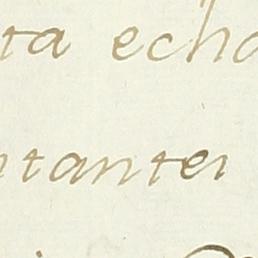 ta echa
ntanter